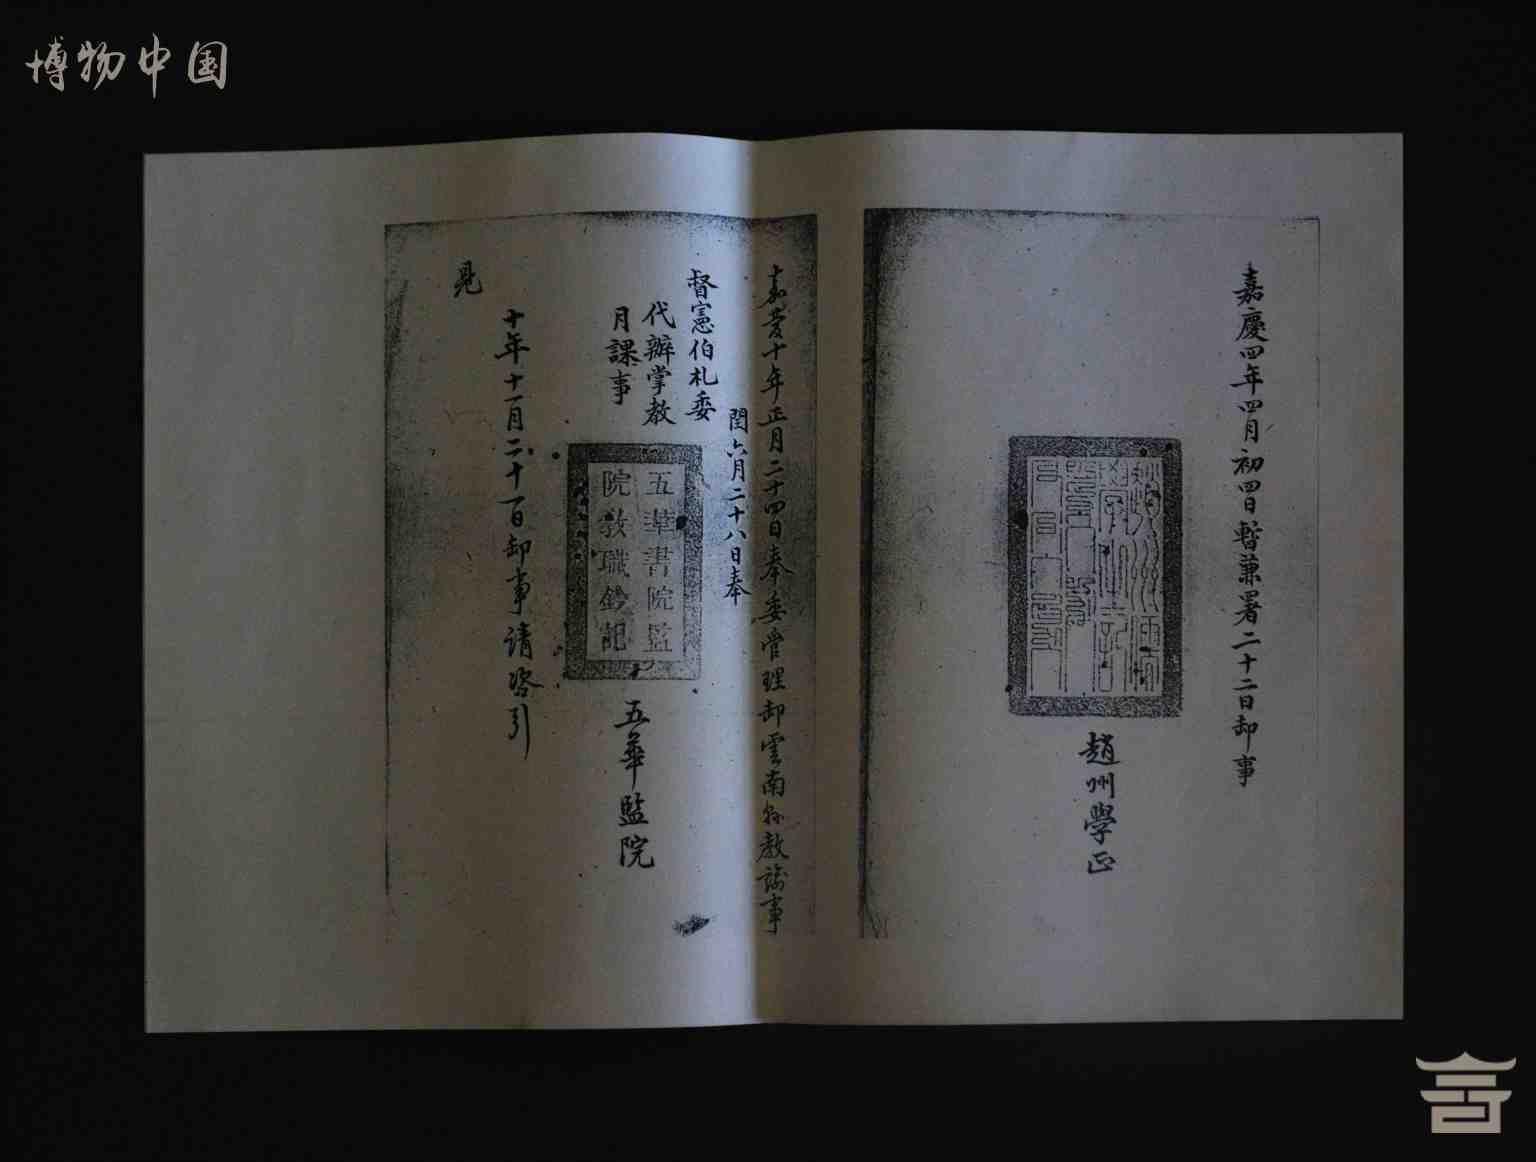 博物中国
嘉慶四年四月初四日暫兼署二十二日卸事
趙州學正
嘉慶十年正月二十四日奉委管理卸雲南縣教諭事
閏六月二十八日奉
督憲伯札委
代辦掌教
月課事
五華書院監
院教職鈐記
五華監院
十年十一月二十一日卸事請咨引
見